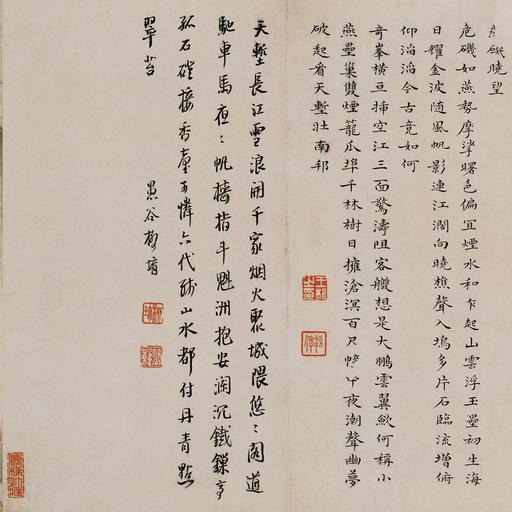 磯曉望
危磯如燕勢摩挲曙色偏宜煙水和乍起山雲浮玉壘初生海
日耀金波随風帆影連江濶向曉樵聲入塢多片石臨流增俯
仰滔滔今古竟如何
奇峯橫亘揷空江三面驚濤阻客艭想是大鵬雲翼歛何稱小
燕壘巢雙煙籠瓜埠千林樹日擁滄溟百尺幢甲夜潮聲幽夢
破起看天塹壯南邦
天塹長江雪浪開千家烟火聚城隈悠〻閣道
馳車馬夜〻帆檣指斗魁洲抱安瀾沉鐵鏁亭
孤石磴接香臺可憐六代殘山水都付丹青點
翠苔
愚谷